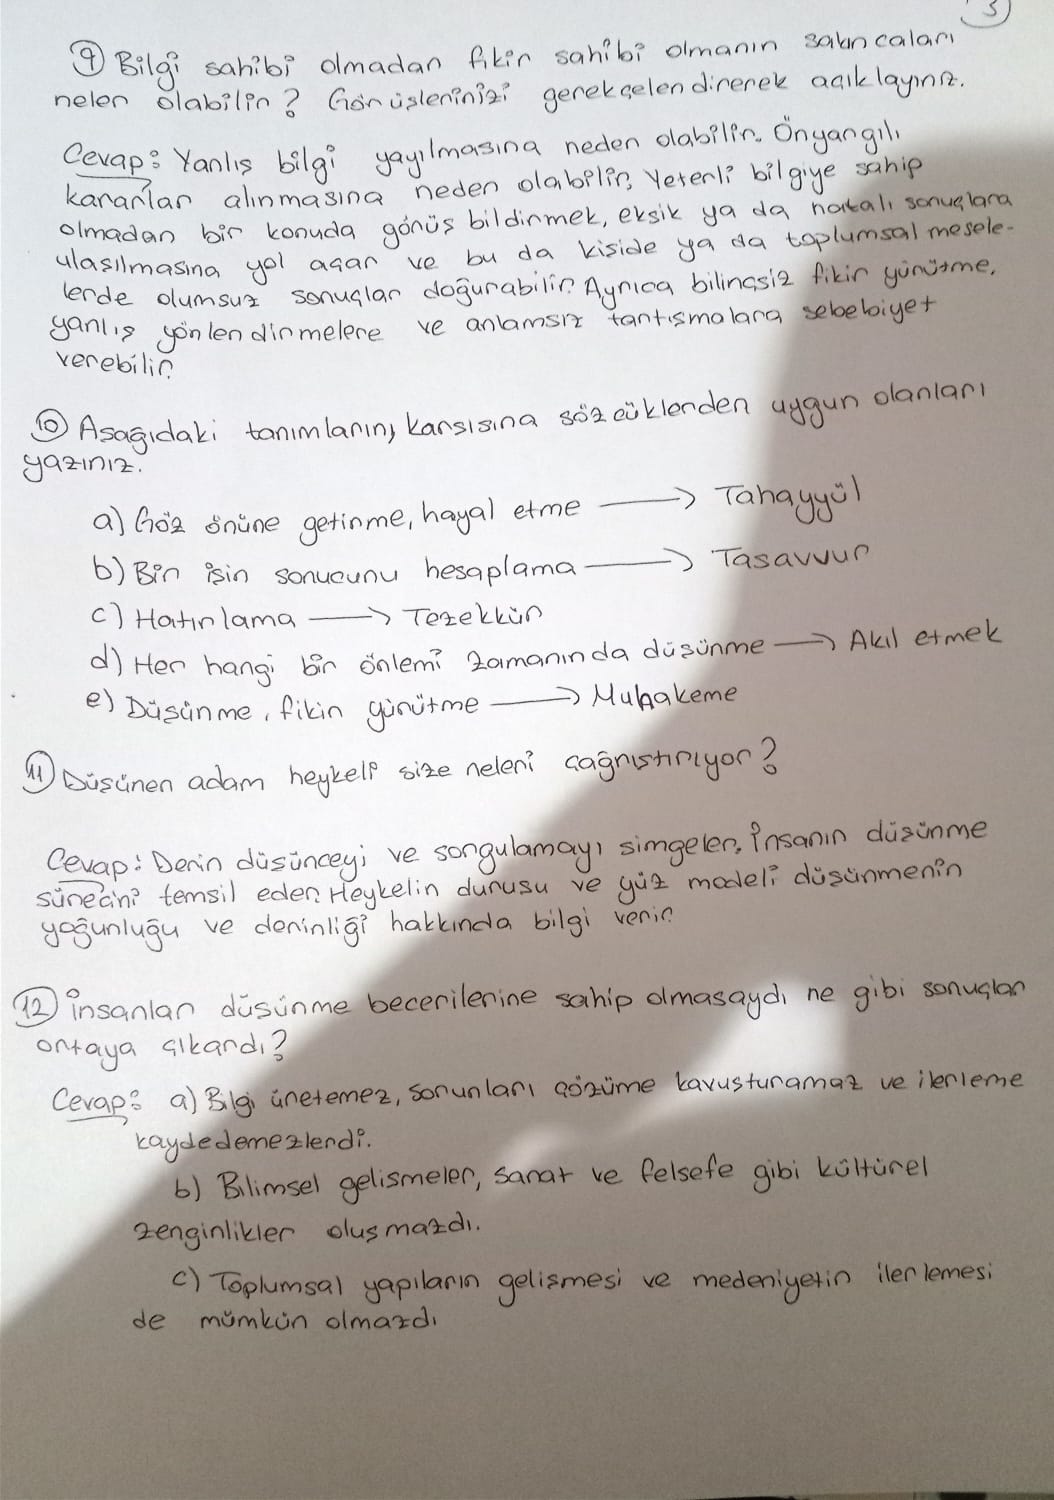 3
9 Bilgi sahibi olmadan fikir sahibi olmanın sakıncaları
neler olabilir? Görüşlerinizi gerekçelendirerek açıklayınız.
Cevap: Yanlış bilgi yayılmasına neden olabilir. Önyargılı
kararlar alınmasına neden olabilir. Yeterli bilgiye sahip
olmadan bir konuda görüş bildirmek, eksik ya da hatalı sonuçlara
ulaşılmasına yol açar ve bu da kişide ya da toplumsal mesele-
lerde olumsuz sonuçlar doğurabilir. Ayrıca bilinçsiz fikir yürütme,
yanlış yönlendirmelere ve anlamsız tartışmalara sebebiyet
verebilir.
10 Aşağıdaki tanımların, karşısına sözcüklerden uygun olanları
yazınız.
a) Göz önüne getirme, hayal etme → Tahayyül
b) Bir işin sonucunu hesaplama → Tasavvur
c) Hatırlama → Tezekkür
d) Her hangi bir önlemi zamanında düşünme → Akıl etmek
e) Düşünme, fikir yürütme → Muhakeme
11 Düşünen adam heykeli size neleri çağrıştırıyor?
Cevap: Derin düşünceyi ve sorgulamayı simgeler. İnsanın düşünme
sürecini temsil eder. Heykelin duruşu ve yüz modeli düşünmenin
yoğunluğu ve derinliği hakkında bilgi verir.
12 İnsanlar düşünme becerilerine sahip olmasaydı ne gibi sonuçlar
ortaya çıkardı?
Cevap: a) Bilgi üretemez, sorunları çözüme kavuşturamaz ve ilerleme
kaydedemezlerdi.
b) Bilimsel gelişmeler, sanat ve felsefe gibi kültürel
zenginlikler oluşmazdı.
c) Toplumsal yapıların gelişmesi ve medeniyetin ilerlemesi
de mümkün olmazdı